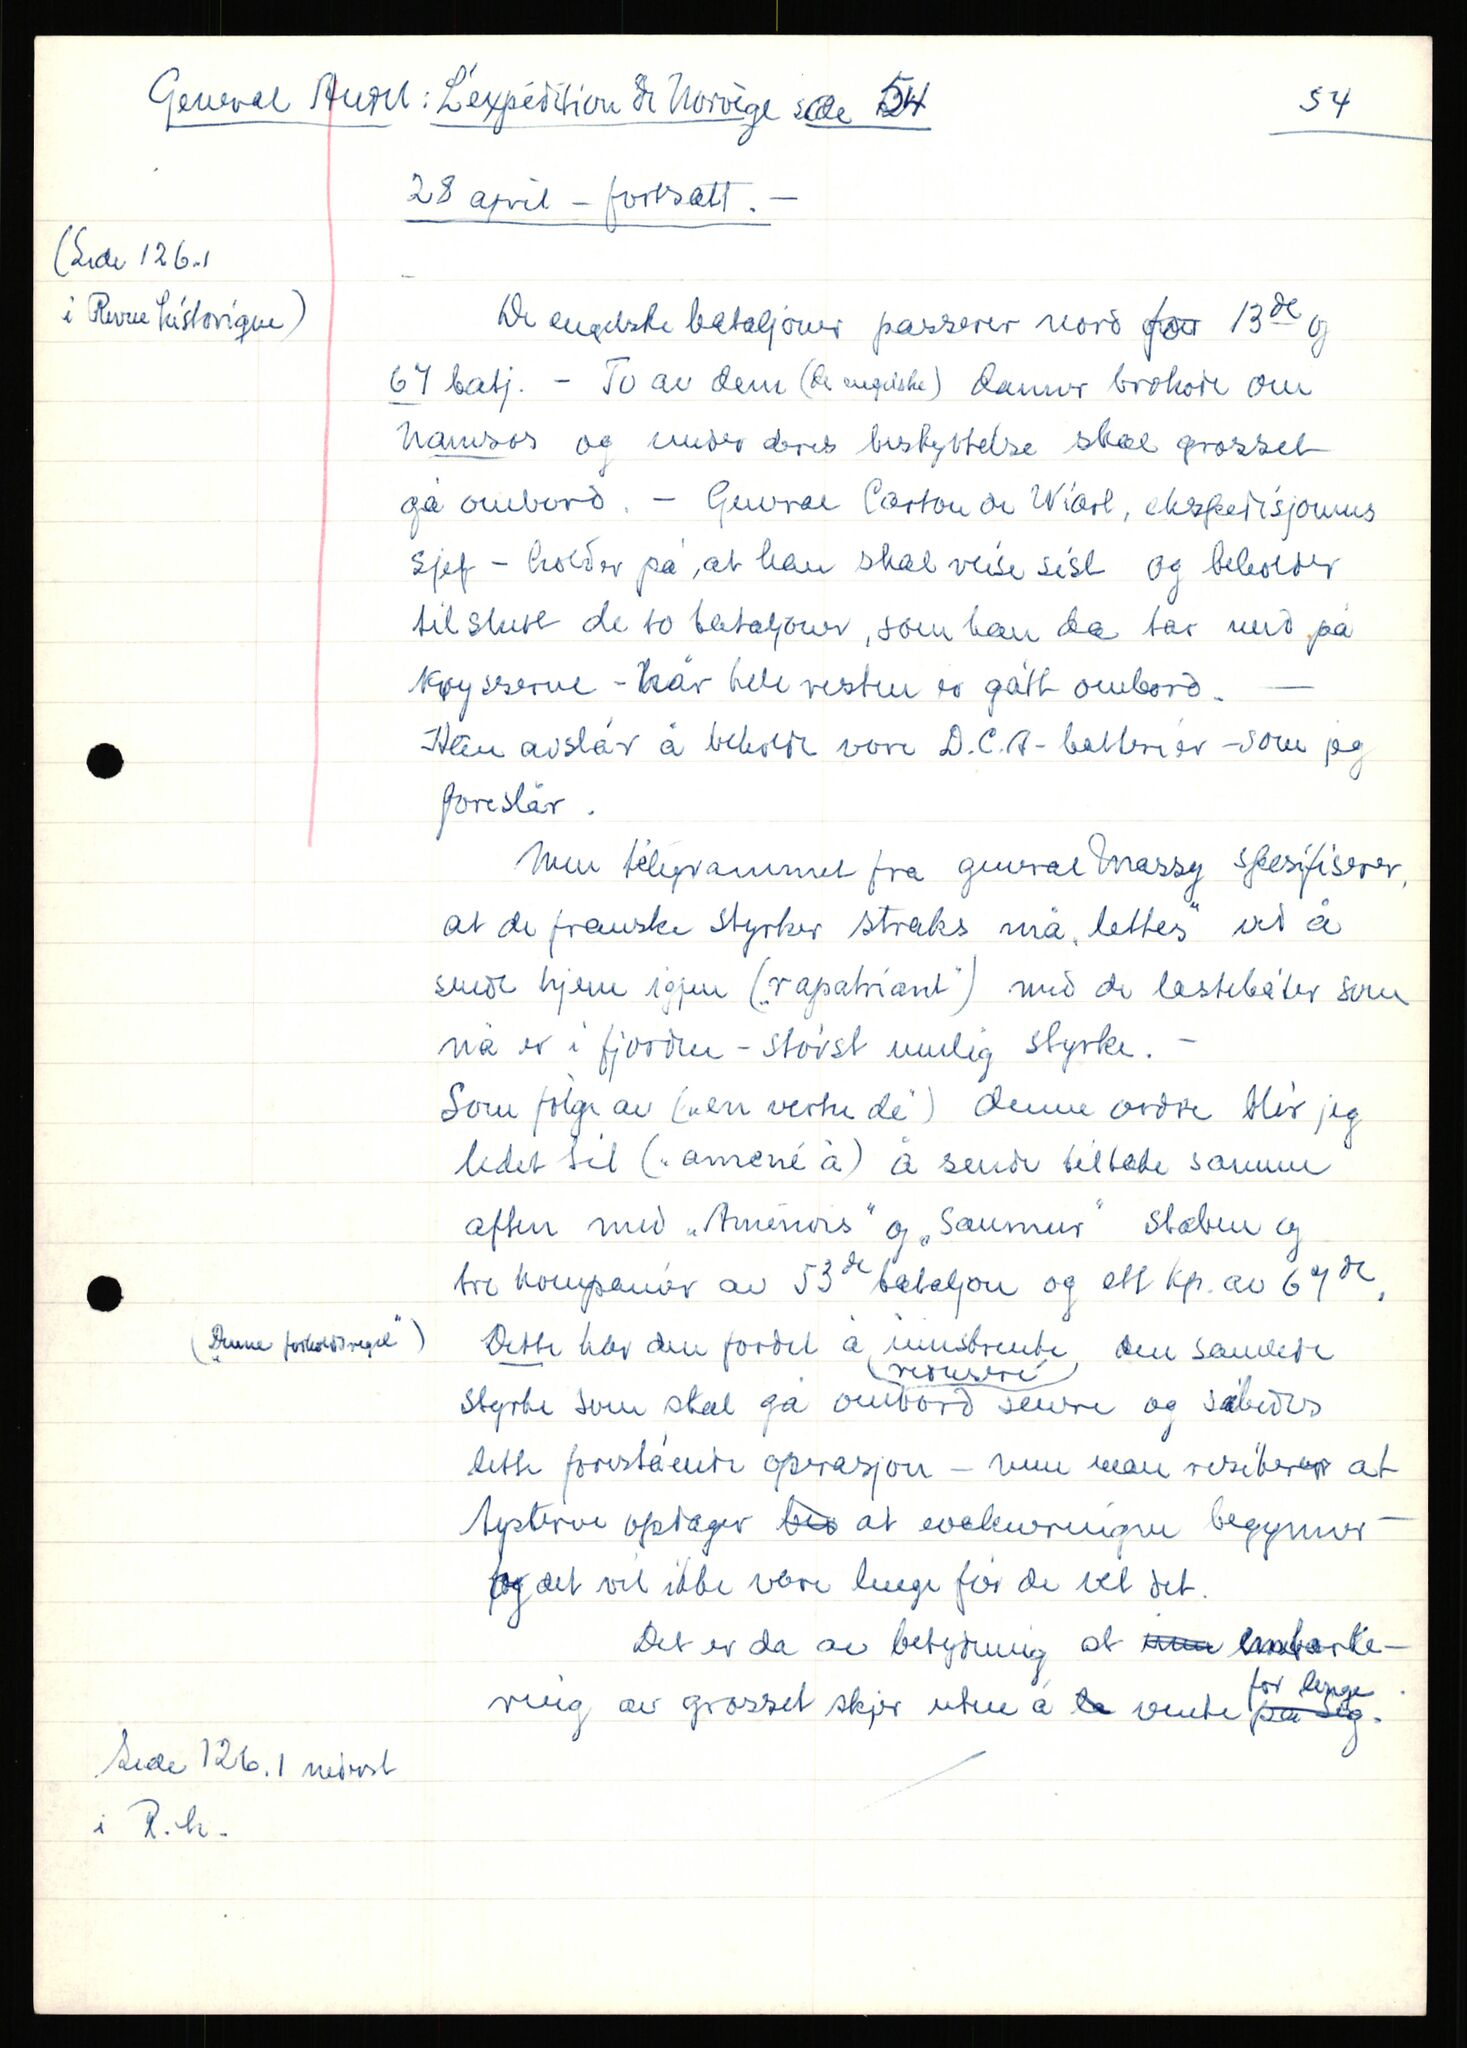 General Audet: L'expédition de Norvège side 54
54
28 april – fortsatt. –
(Side 126.1
i Revue historique)
De engelske bataljoner passerer nord for 13de og
67 batj. – To av dem (de engelske) danner brohode om
Namsos og under deres beskyttelse skal grosset
gå ombord. – General Carton de Wiart, ekspedisjonens
sjef – holder på, at han skal reise sist og beholder
til slutt de to bataljoner, som han da tar med på
krysserne – når hele resten er gått ombord. —
Han avslår å beholde våre D.C.A-batterier – som jeg
foreslår.
Men telegrammet fra general Massy spesifiserer,
at de franske styrker straks må „lettes" ved å
sende hjem igjen („rapatriant") med de lastebåter som
nå er i fjorden – størst mulig styrke. –
Som følge av („en vertu de") denne ordre blir jeg
ledet til („amené à) å sende tilbake samme
aften med „Amiénois" og „Saumur" staben og
tre kompanier av 53de bataljon og ett kp. av 67de.
(„Denne forholdsregel")
Dette har den fordel å innskrenke den samlede
(redusere)
styrke som skal gå ombord senere og således
lette forestående operasjon – men man risikerer at
tyskerne opdager at evakueringen begynner –
og det vil ikke være lenge før de vet det.
Det er da av betydning at embarke-
ring av grosset skjer uten å vente for lenge.
på seg.
Side 126.1 nederst
i R.h.